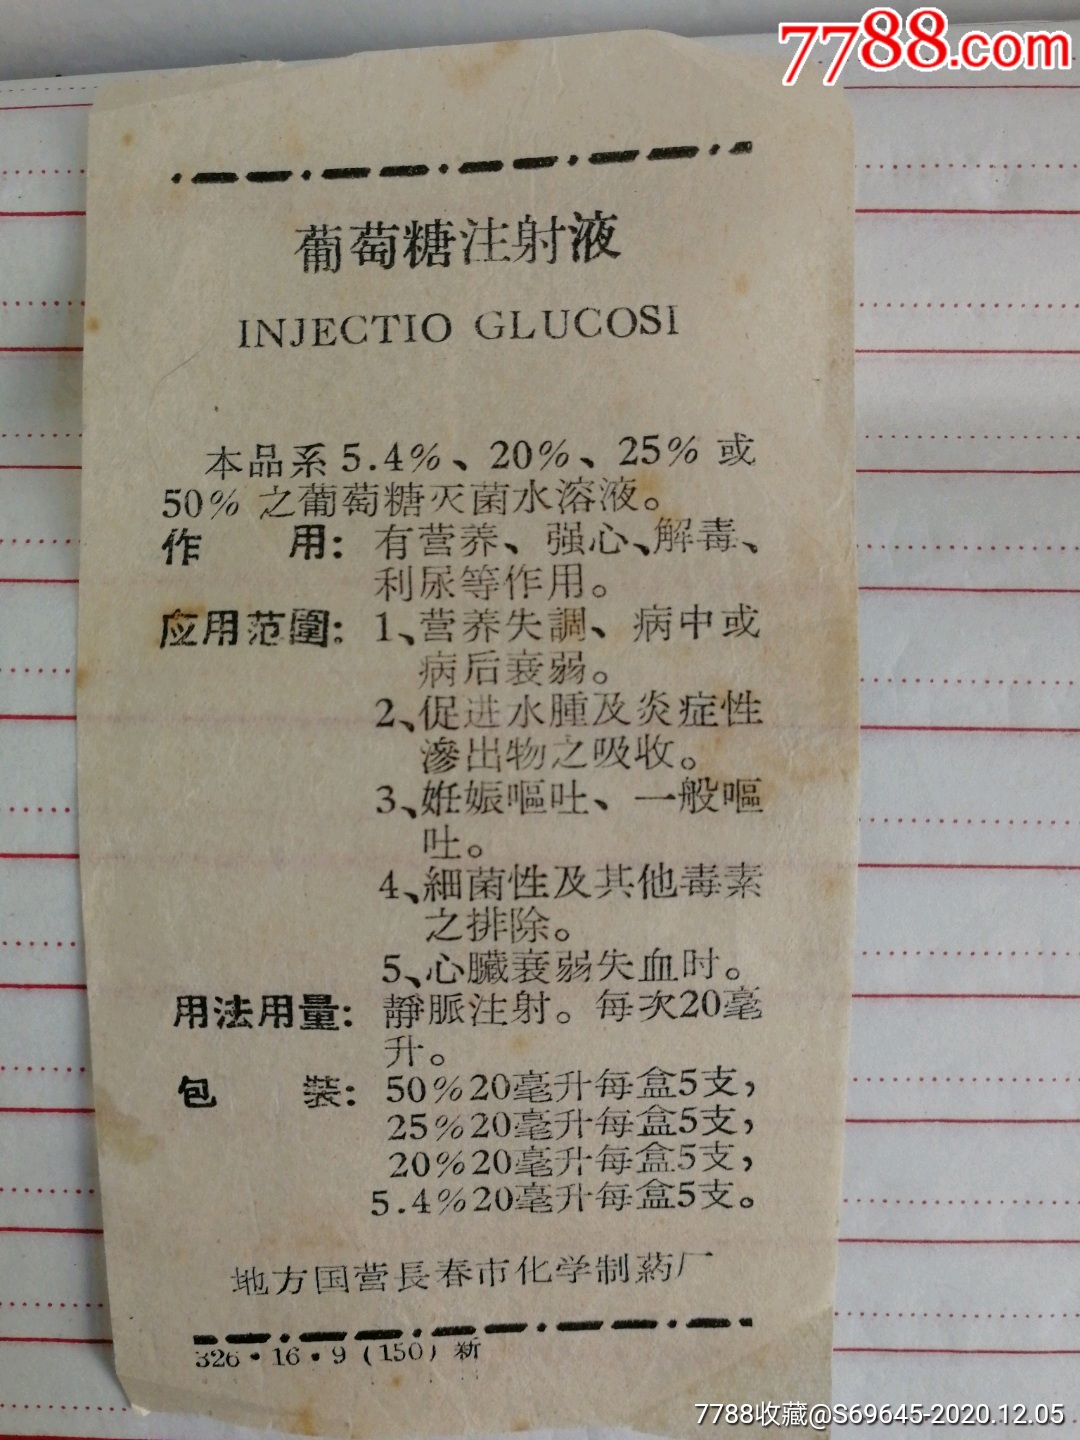 7788.com
葡萄糖注射液
INJECTIO GLUCOSI
本品系5.4%、20%、25%或
50%之葡萄糖灭菌水溶液。
作　　用：有营养、强心、解毒、
利尿等作用。
应用范圍：1、营养失調、病中或
病后衰弱。
2、促进水腫及炎症性
滲出物之吸收。
3、妊娠嘔吐、一般嘔
吐。
4、細菌性及其他毒素
之排除。
5、心臟衰弱失血时。
用法用量：靜脈注射。每次20毫
升。
包　　装：50%20毫升每盒5支，
25%20毫升每盒5支，
20%20毫升每盒5支，
5.4%20毫升每盒5支。
地方国营長春市化学制葯厂
326·16·9（150）新
7788收藏@S69645-2020.12.05